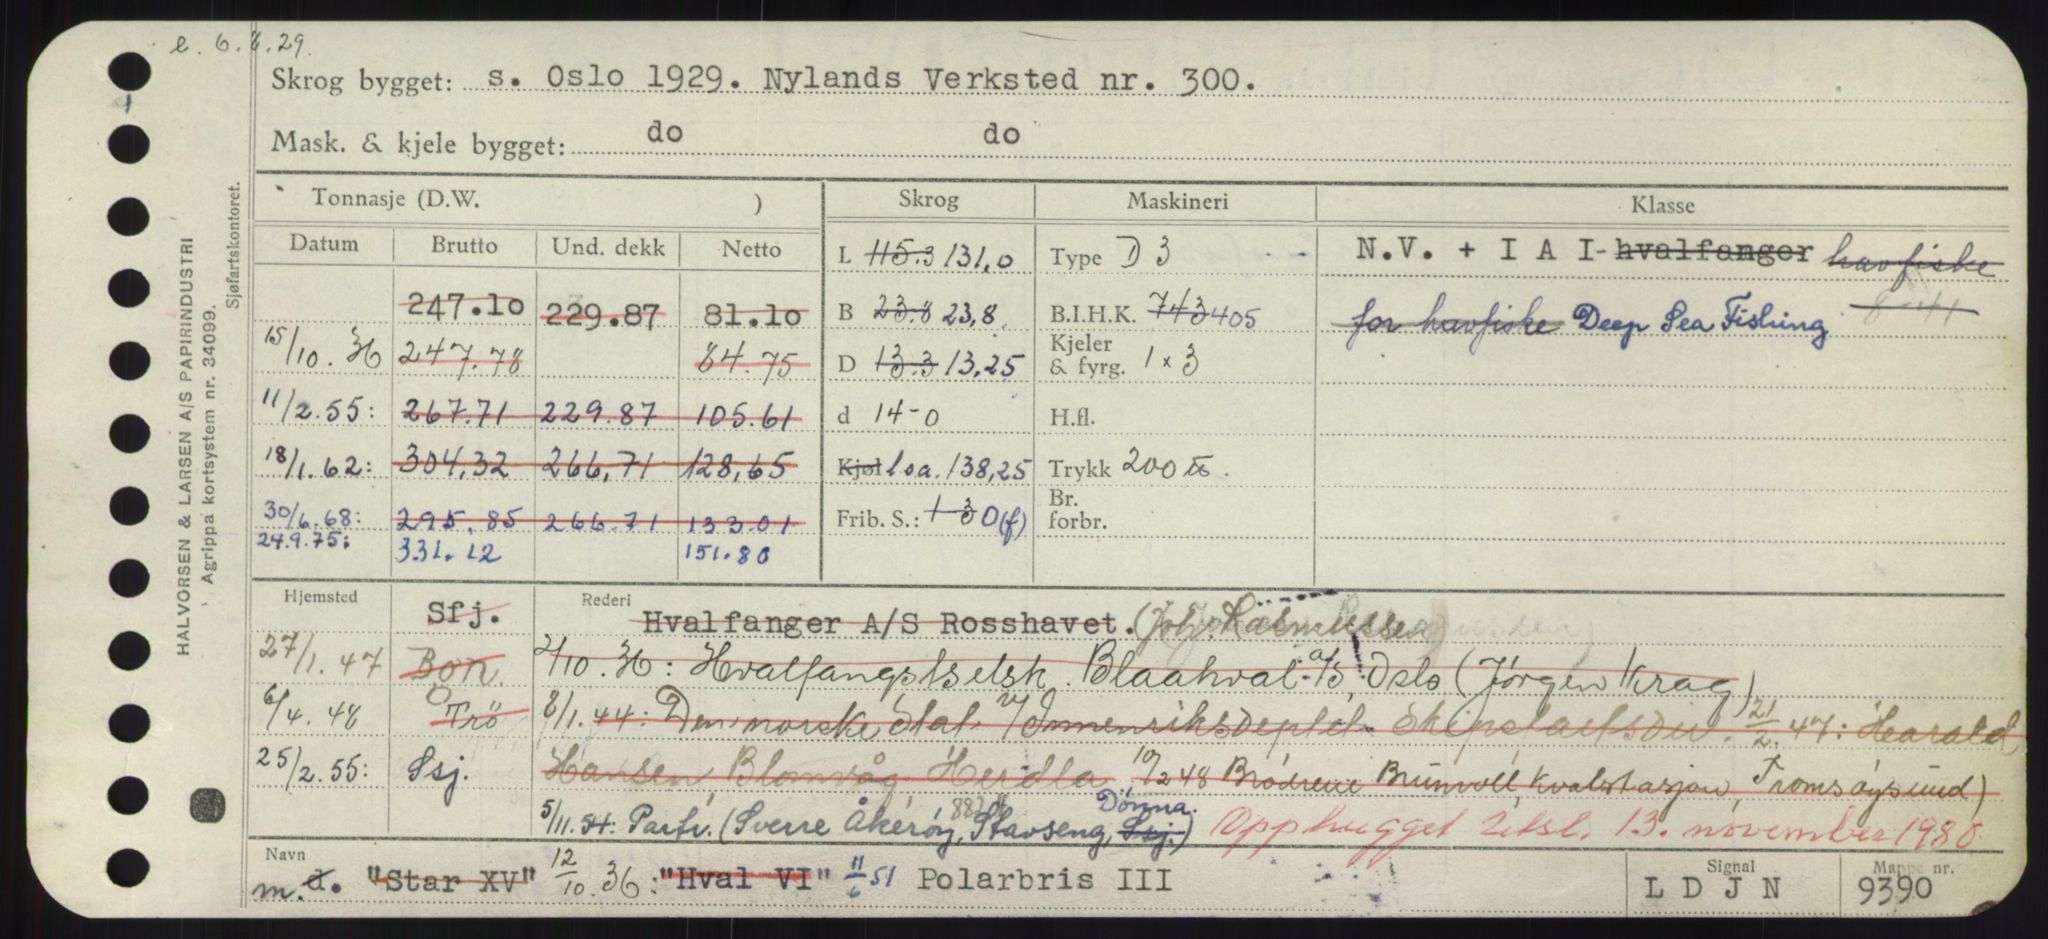 e. 6.8.29.
Skrog bygget: s. Oslo 1929. Nylands Verksted nr. 300.
Mask. & kjele bygget: do do
HALVORSEN & LARSEN A/S PAPIRINDUSTRI
Agrippa kortsystem nr. 34099.
Sjøfartskontoret.
Tonnasje (D.W. ) Skrog Maskineri Klasse
Datum Brutto Und. dekk Netto
L 115.3 131,0 Type D 3 N.V. + I A I-hvalfanger havfiske
247.10 229.87 81.10 B 23.8 23,8 B.I.H.K. 743 405 for havfiske Deep Sea Fishing 8-41
15/10.36 247.78 84.75 D 13.3 13,25 Kjeler & fyrg. 1 x 3
11/2.55: 267.71 229.87 105.61 d 14-0 H.fl.
18/1.62: 304,32 266,71 128,65 Kjøl loa. 138,25 Trykk 200 lb.
30/6.68: 295.85 266.71 133.01 Frib. S.: 1-3 0(f) Br. forbr.
24.9.75: 331.12 151.80
Hjemsted Sfj. Rederi Hvalfanger A/S Rosshavet. (Joh. Rasmussen)
27/1.47 Bon. 2/10.36: Hvalfangstselsk. Blaahval a/s, Oslo (Jörgen Krag)
6/4.48 Trö 8/1.44: Den norske stat v/Innenriksdeptet. Skipsfartsdir. 21/2.47: Harald
25/2.55: Ssj. Hansen, Blomvåg, Herdla 10/2 48 Brödrene Brunvoll, Kvalstasjon, Tromsöysund)
5/11.54: Partr. (Sverre Åkeröy, Stavseng, Ssj.) Dönna. Opphugget 2.tsl. 13. november 1980
Navn Signal Mappe nr.
m. d. "Star XV" 12/10.36: "Hval VI" 11/6 51 Polarbris III L D J N 9390